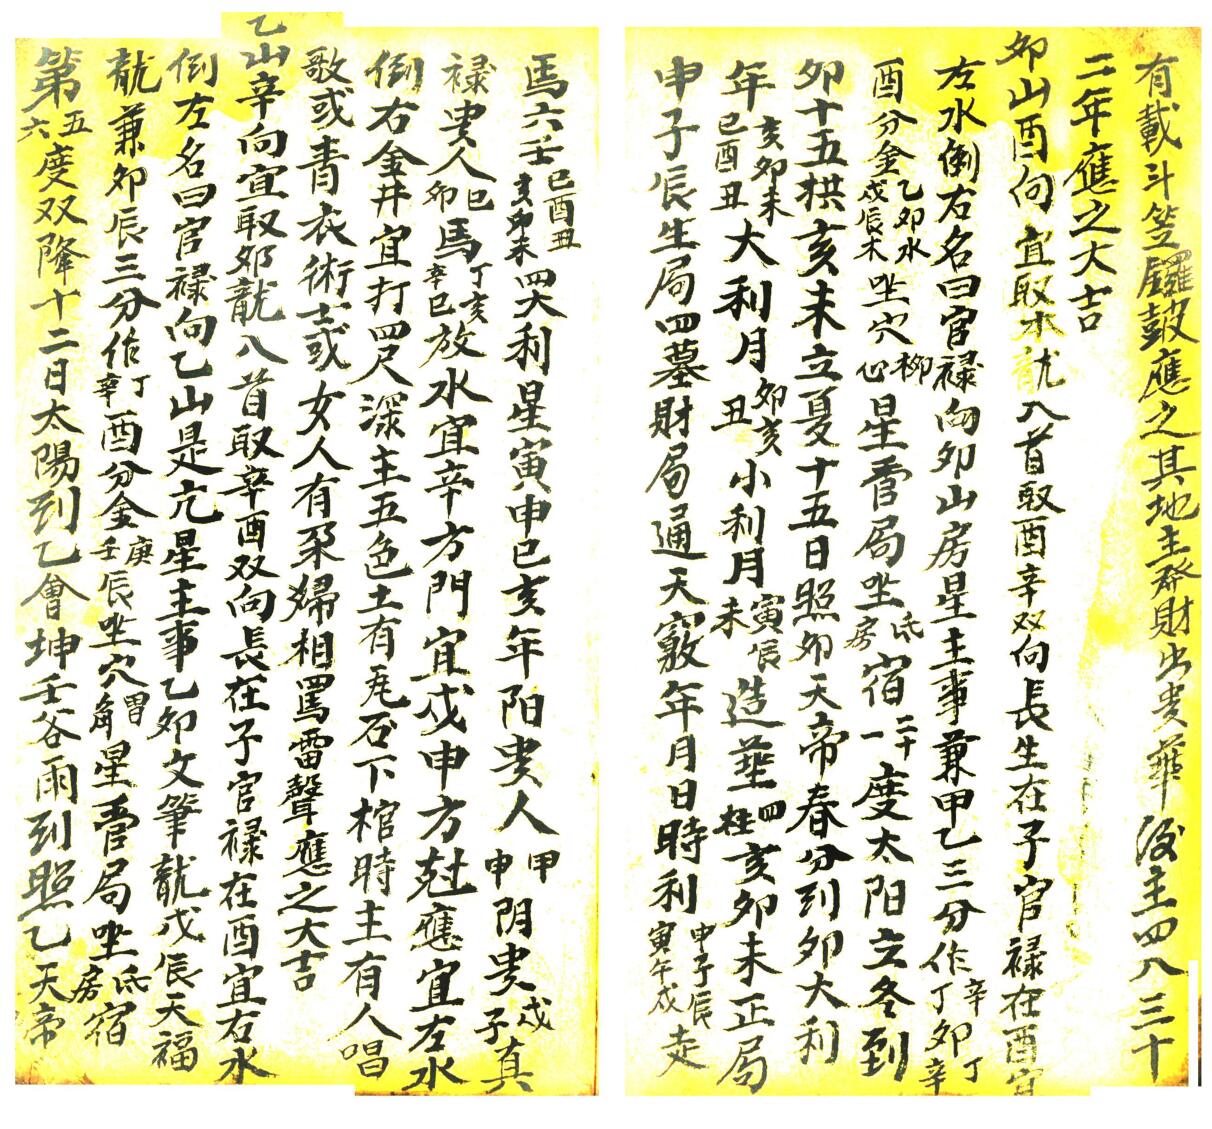 有載斗笠鑼鼓應之其地主發財出貴葬後主四八三十
二年應之大吉
卯山酉向宜取木龍入首取酉辛双向長生在子官禄在酉宜
左水倒右名曰官禄向卯山房星主事兼甲乙三分作辛丁卯丁辛
酉分金乙卯水戊辰木坐穴柳心星奮局坐氐房宿二十一度太阳立冬到
卯十五拱亥未立夏十五日照卯天帝春分到卯大利
年亥卯未巳酉丑大利月卯亥丑小利月寅辰未造葬四柱亥卯未正局
申子辰生局四墓財局通天竅年月日時利申子辰寅午戌走
馬六壬巳酉丑亥卯未四大利星寅申巳亥年阳贵人甲申阴贵戊子真
禄贵人巳卯馬丁亥辛巳放水宜辛方門宜戌申方尅應宜左水
倒右金井宜打四尺深主五色土有瓦石下棺時主有人唱
歌或青衣術士或女人有孕婦相罵雷聲應之大吉
乙山辛向宜取卯龍入首取辛酉双向長在子官禄在酉宜右水
倒左名曰官禄向乙山是亢星主事乙卯文筆龍戊辰天福
龍兼卯辰三分作丁辛酉分金庚壬辰坐穴胃角星奮局坐氐房宿
第五六度双降十二日太陽到乙會坤壬谷雨到照乙天帝